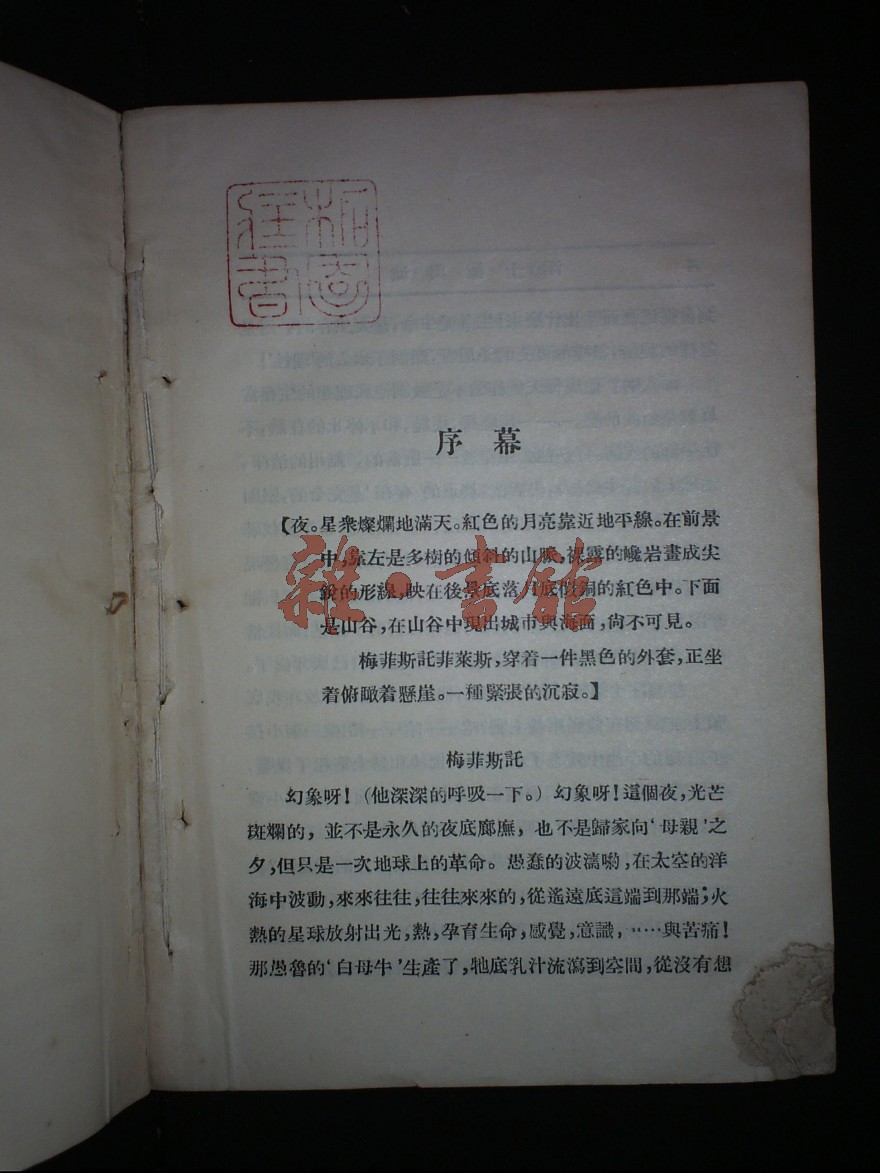 序幕
【夜。星衆燦爛地滿天。紅色的月亮靠近地平線。在前景
中，靠左是多樹的傾斜的山脈，裸露的巉岩畫成尖
銳的形線，映在後景底落月底假銅的紅色中。下面
是山谷，在山谷中現出城市與海面，尙不可見。
梅菲斯託菲萊斯，穿着一件黑色的外套，正坐
着俯瞰着懸崖。一種緊張的沉寂。】
梅菲斯託
幻象呀！（他深深的呼吸一下。）幻象呀！這個夜，光芒
斑斕的，並不是永久的夜底廊廡，也不是歸家向‘母親’之
夕，但只是一次地球上的革命。愚蠢的波濤喲，在太空的洋
海中波動，來來往往，往往來來的，從遙遠底這端到那端；火
熱的星球放射出光，熱，孕育生命，感覺，意識，……與苦痛！
那愚魯的‘白母牛’生產了，牠底乳汁流瀉到空間，從沒有想
雜·書館